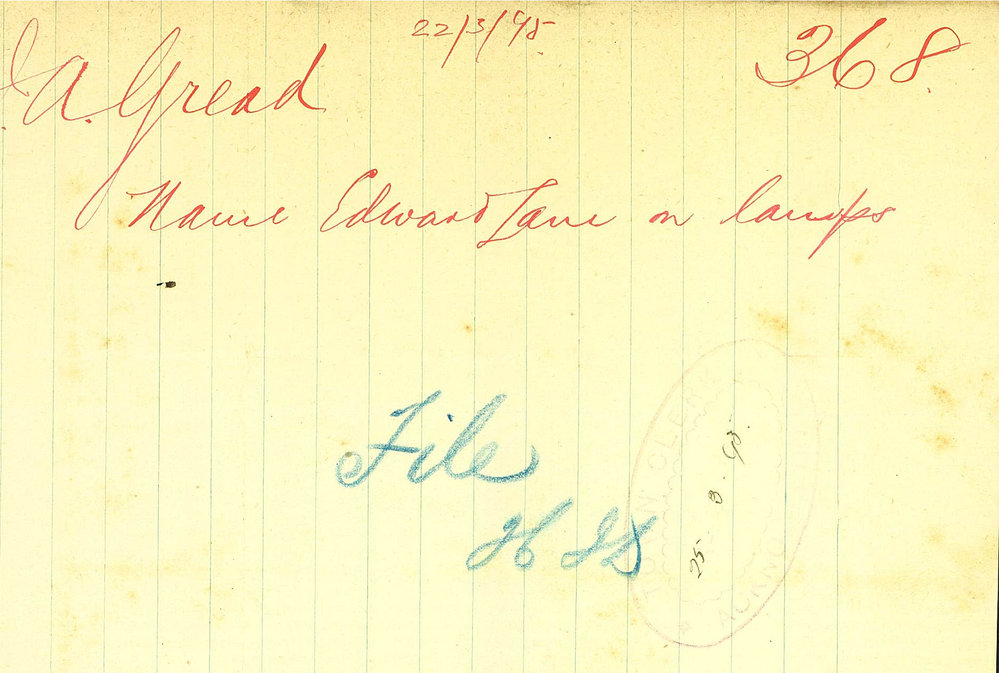 22/3/95
368.
J. A. Gread
Name Edward Lane on lamps
File
TOWN CLERK
25 3 95.